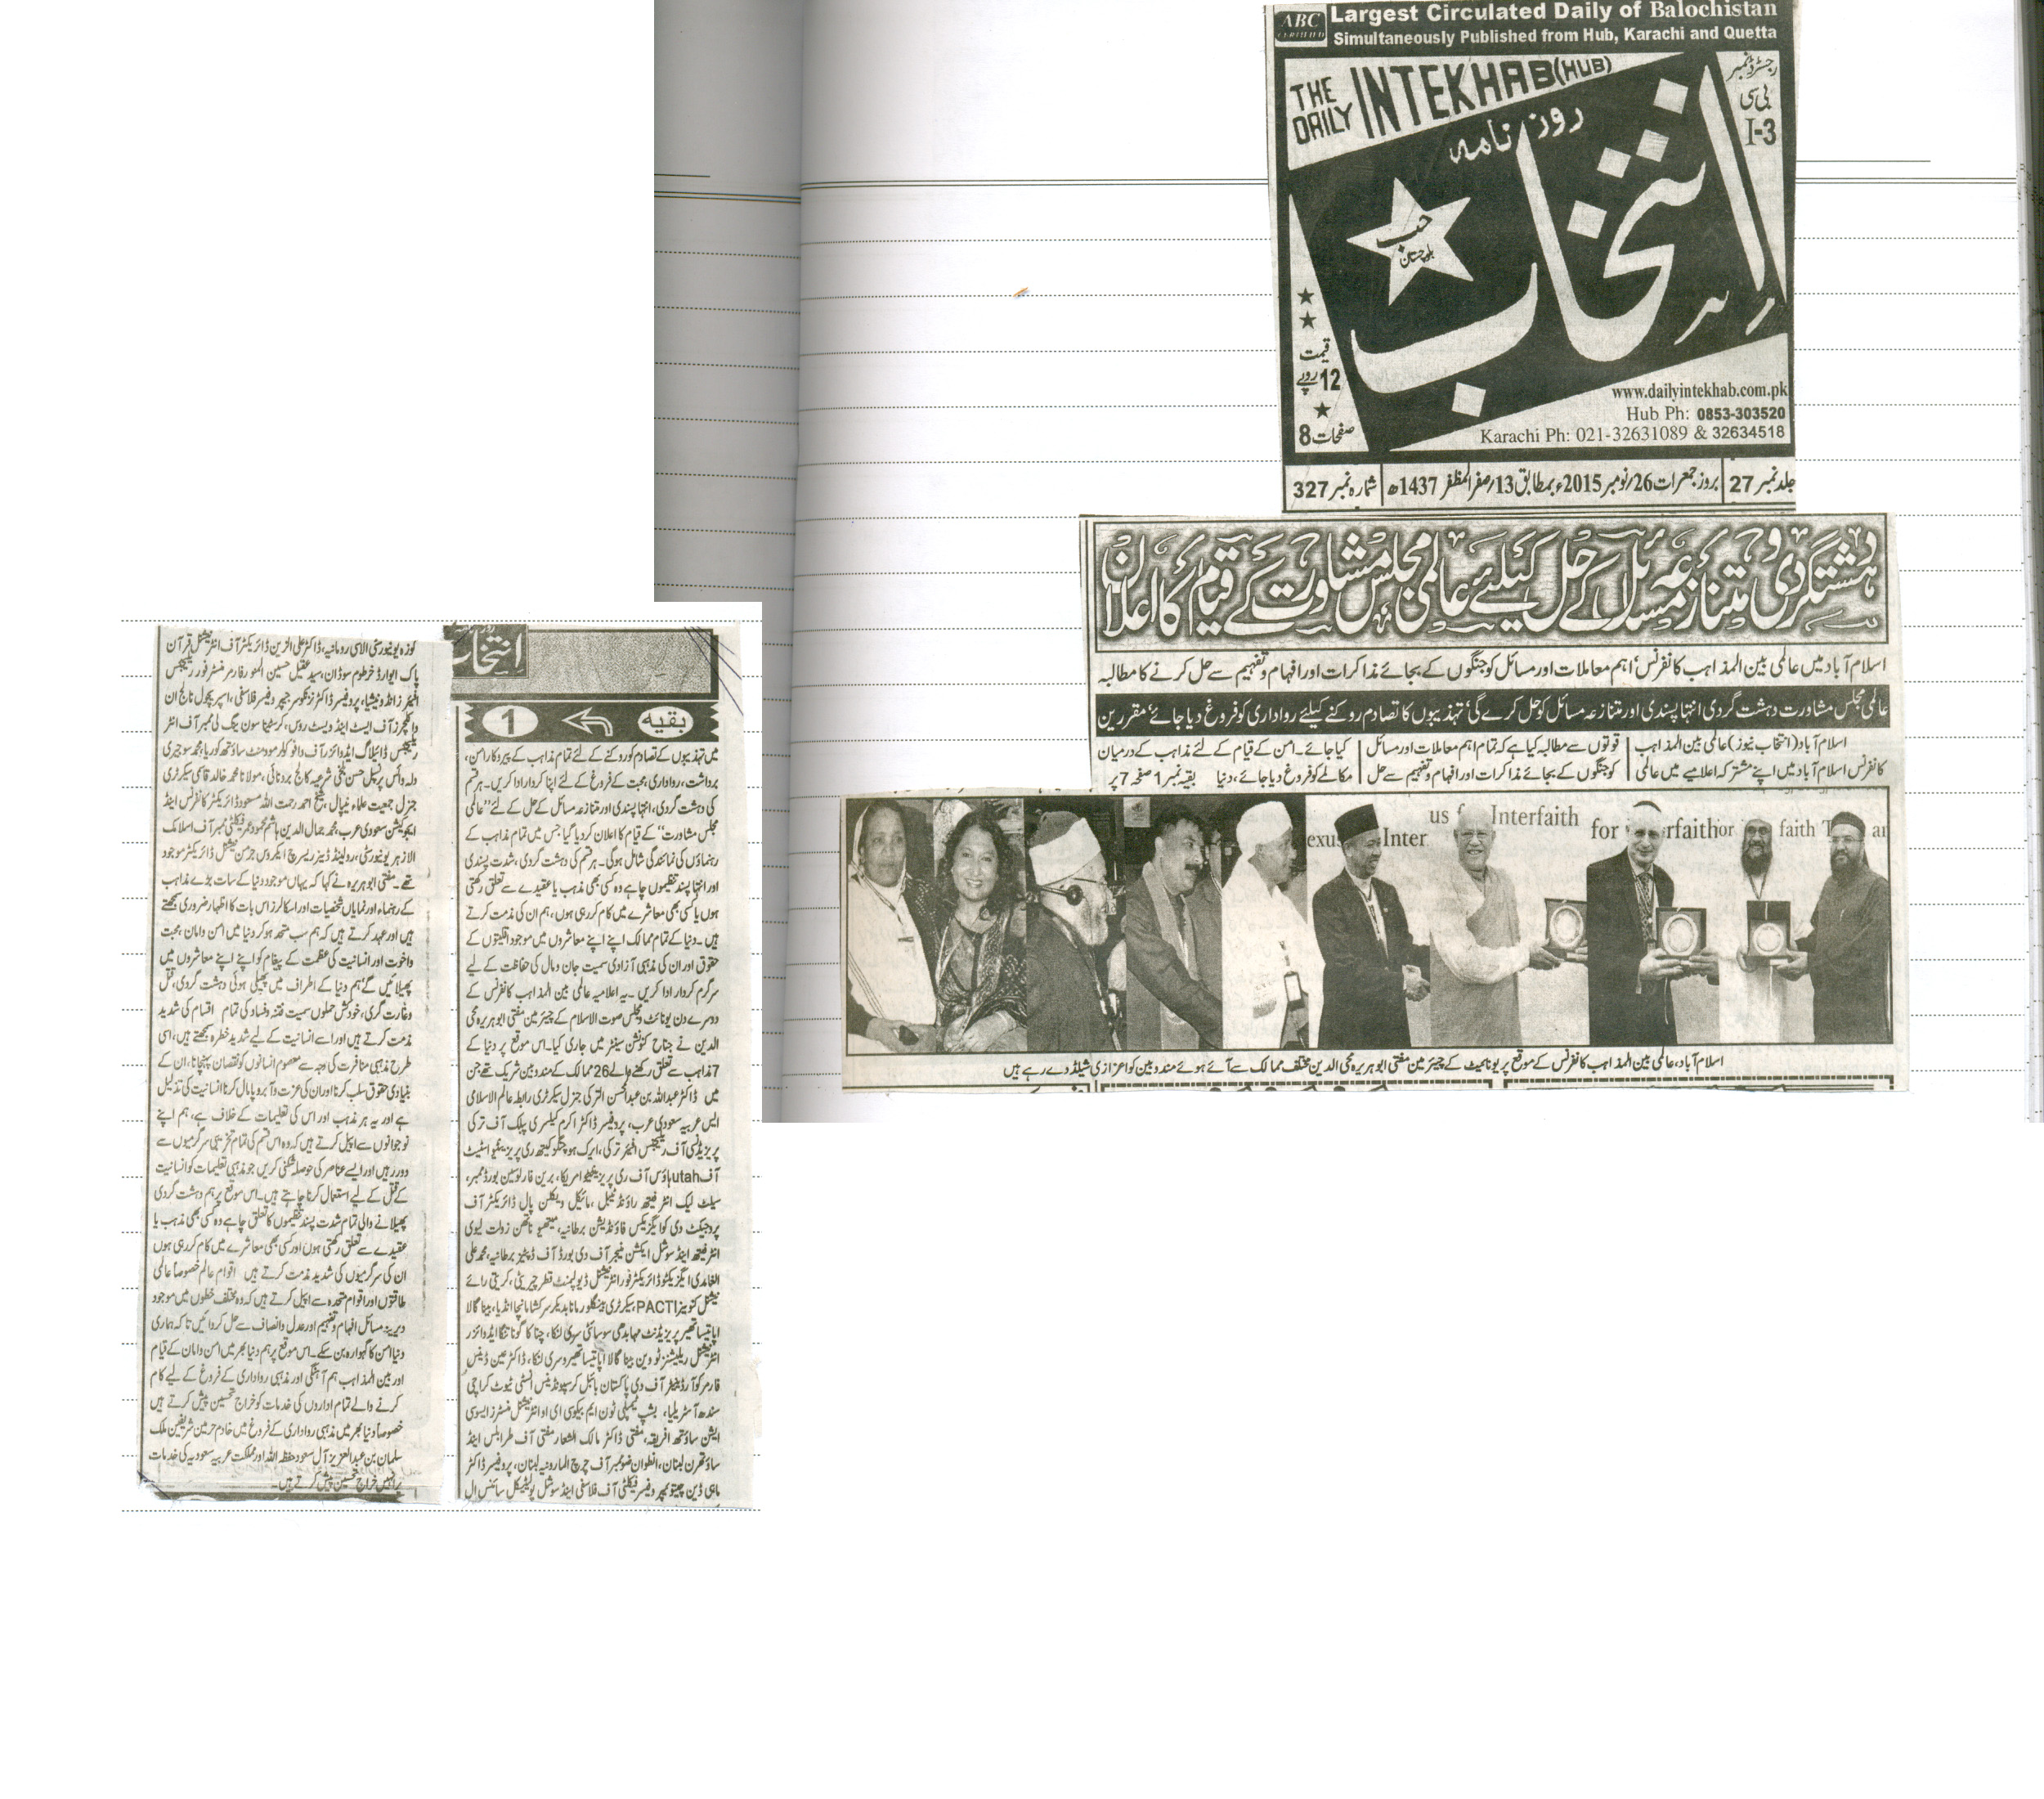 ABC CERTIFIED
Largest Circulated Daily of Balochistan
Simultaneously Published from Hub, Karachi and Quetta
THE DAILY INTEKHAB (HUB)
رجسٹرڈ نمبر
بی سی
I-3
روزنامہ
انتخاب
حب
بلوچستان
قیمت
12 روپے
صفحات 8
www.dailyintekhab.com.pk
Hub Ph: 0853-303520
Karachi Ph: 021-32631089 & 32634518
جلد نمبر 27 بروز جمعرات 26/نومبر 2015ء بمطابق 13/صفر المظفر 1437ھ شمارہ نمبر 327
دہشتگردی و متنازعہ مسائل کے حل کیلئے عالمی مجلس مشاورت کے قیام کا اعلان
اسلام آباد میں عالمی بین المذاہب کانفرنس، اہم معاملات اور مسائل کو جنگوں کے بجائے مذاکرات اور افہام و تفہیم سے حل کرنے کا مطالبہ
عالمی مجلس مشاورت دہشت گردی انتہا پسندی اور متنازعہ مسائل کو حل کرے گی، تہذیبوں کا تصادم روکنے کیلئے رواداری کو فروغ دیا جائے، مقررین
اسلام آباد (انتخاب نیوز) عالمی بین المذاہب
کانفرنس اسلام آباد میں اپنے مشترکہ اعلامیے میں عالمی
قوتوں سے مطالبہ کیا ہے کہ تمام اہم معاملات اور مسائل
کو جنگوں کے بجائے مذاکرات اور افہام و تفہیم سے حل
کیا جائے۔ امن کے قیام کے لئے مذاہب کے درمیان
مکالمے کو فروغ دیا جائے، دنیا بقیہ نمبر 1 صفحہ 7 پر
exus Inter
us f Interfaith
for rfaith
or faith T ar
اسلام آباد، عالمی بین المذاہب کانفرنس کے موقع پر یونائیٹ کے چیئرمین مفتی ابوہریرہ محی الدین مختلف ممالک سے آئے ہوئے مندوبین کو اعزازی شیلڈ دے رہے ہیں
انتخاب
بقیہ 1
میں تہذیبوں کے تصادم کو روکنے کے لئے تمام مذاہب کے پیروکار امن،
برداشت، رواداری، محبت کے فروغ کے لئے اپنا کردار ادا کریں۔ ہر قسم
کی دہشت گردی، انتہا پسندی اور متنازعہ مسائل کے حل کے لئے "عالمی
مجلس مشاورت" کے قیام کا اعلان کر دیا گیا جس میں تمام مذاہب کے
رہنماؤں کی نمائندگی شامل ہوگی۔ ہر قسم کی دہشت گردی، شدت پسندی
اور انتہا پسند تنظیموں چاہے وہ کسی بھی مذہب یا عقیدے سے تعلق رکھتی
ہوں یا کسی بھی معاشرے میں کام کر رہی ہوں، ہم ان کی مذمت کرتے
ہیں۔ دنیا کے تمام ممالک اپنے اپنے معاشروں میں موجود اقلیتوں کے
حقوق اور ان کی مذہبی آزادی سمیت جان و مال کی حفاظت کے لیے
سرگرم کردار ادا کریں۔ یہ اعلامیہ عالمی بین المذاہب کانفرنس کے
دوسرے دن یونائٹ و مجلس صوت الاسلام کے چیئرمین مفتی ابوہریرہ محی
الدین نے جناح کنونشن سینٹر میں جاری کیا۔ اس موقع پر دنیا کے
7 مذاہب سے تعلق رکھنے والے 26 ممالک کے مندوبین شریک تھے جن
میں ڈاکٹر عبداللہ بن عبدالمحسن الترکی جنرل سیکرٹری رابطہ عالم الاسلامی
ایس عربیہ سعودی عرب، پروفیسر ڈاکٹر اکرم کیلسری پبلک آف ترکی
پریزیڈنسی آف ریلیجس افیئر ترکی، ایرک ہوچنگو کیتھ ری پریزینٹیو اسٹیٹ
آف utah ہاؤس آف ری پریزینٹیو امریکا، برین فارنوسین بورڈ ممبر،
سیلٹ لیک انٹر فیتھ راؤنڈ ٹیبل، مائیکل ویکلن پال ڈائریکٹر آف
پروجیکٹ دی کوایگزیکس فاؤنڈیشن برطانیہ، میتھیو ناتھن زولٹ لیوی
انٹر فیتھ اینڈ سوشل ایکشن منیجر آف دی بورڈ آف ڈپٹیز برطانیہ، محمد علی
الغامدی ایگزیکٹو ڈائریکٹر فور انٹرنیشنل ڈیولپمنٹ قطر چیریٹی، کریتی رائے
نیشنل کنوینر PACTI، سیکرٹری بینگلور مانابدیکر سرکشا مانچا انڈیا، بینا گالا
اپاتیسا تھیر پریزیڈنٹ مہابدھی سوسائٹی سری لنکا، چتا کا گونا تنگا ایڈوائزر
انٹرنیشنل ریلیشنز ٹو وین بینا گالا اپاتیسا تھیرو سری لنکا، ڈاکٹر عین ڈینس
فارمر کوآرڈینیٹر آف دی پاکستان بائبل کرسپونڈینس انسٹی ٹیوٹ کراچی
سندھ آسٹریلیا، بشپ ٹیمپلی ٹون ایم بیکوسی ای او انٹرنیشنل منسٹرز ایسوسی
ایشن ساؤتھ افریقہ، مفتی ڈاکٹر مالک الشعار مفتی آف طرابلس اینڈ
ساؤتھرن لبنان، انطوان ضو ممبر آف چرچ المارونیہ لبنان، پروفیسر ڈاکٹر
ماہی ڈین چیتو پیر وفیسر فیکلٹی آف فلاسفی اینڈ سوشل پولیٹیکل سائنس ال
کوزہ یونیورسٹی الاسی رومانیہ، ڈاکٹر علی الزین ڈائریکٹر آف انٹرنیشنل قرآن
پاک ایوارڈ خرطوم سوڈان، سید عقیل حسین المنور فارمر منسٹر فور ریلیجس
افیئرز انڈونیشیا، پروفیسر ڈاکٹر
الازہر یونیورسٹی، رولینڈ ڈینز ریسرچ ایگروس جرمن نیشنل ڈائریکٹر موجود
تھے۔ مفتی ابوہریرہ نے کہا کہ یہاں موجود دنیا کے سات بڑے مذاہب
کے رہنماء اور نمایاں شخصیات اور اسکالرز اس بات کا اظہار ضروری سمجھتے
ہیں اور عہد کرتے ہیں کہ ہم سب متحد ہو کر دنیا میں امن و امان، محبت
و اخوت اور انسانیت کی عظمت کے پیغام کو اپنے اپنے معاشروں میں
پھیلائیں گے، ہم دنیا کے اطراف میں پھیلی ہوئی دہشت گردی، قتل
و غارت گری، خودکش حملوں سمیت فتنہ و فساد کی تمام اقسام کی شدید
مذمت کرتے ہیں اور اسے انسانیت کے لیے شدید خطرہ سمجھتے ہیں، اسی
طرح مذہبی منافرت کی وجہ سے معصوم انسانوں کو نقصان پہنچانا، ان کے
بنیادی حقوق سلب کرنا اور ان کی عزت و آبرو پامال کرنا انسانیت کی تذلیل
ہے اور یہ ہر مذہب اور اس کی تعلیمات کے خلاف ہے، ہم اپنے
نوجوانوں سے اپیل کرتے ہیں کہ وہ اس قسم کی تمام تخریبی سرگرمیوں سے
دور رہیں اور ایسے عناصر کی حوصلہ شکنی کریں جو مذہبی تعلیمات کو انسانیت
کے قتل کے لیے استعمال کرنا چاہتے ہیں۔ اس موقع پر ہم دہشت گردی
پھیلانے والی تمام شدت پسند تنظیموں کا تعلق چاہے وہ کسی بھی مذہب یا
عقیدے سے تعلق رکھتی ہوں اور کسی بھی معاشرے میں کام کر رہی ہوں
ان کی سرگرمیوں کی شدید مذمت کرتے ہیں اقوام عالم خصوصاً عالمی
طاقتوں اور اقوام متحدہ سے اپیل کرتے ہیں کہ وہ مختلف خطوں میں موجود
دیرینہ مسائل افہام و تفہیم اور عدل و انصاف سے حل کروائیں تاکہ ہماری
دنیا امن کا گہوارہ بن سکے۔ اس موقع پر ہم دنیا بھر میں امن و امان کے قیام
اور بین المذاہب ہم آہنگی اور مذہبی رواداری کے فروغ کے لیے کام
کرنے والے تمام اداروں کی خدمات کو خراج تحسین پیش کرتے ہیں
خصوصاً دنیا بھر میں مذہبی رواداری کے فروغ میں خادم حرمین شریفین ملک
سلمان بن عبدالعزیز آل سعود حفظہ اللہ اور مملکت عربیہ سعودیہ کی خدمات
پر انہیں خراج تحسین پیش کرتے ہیں۔